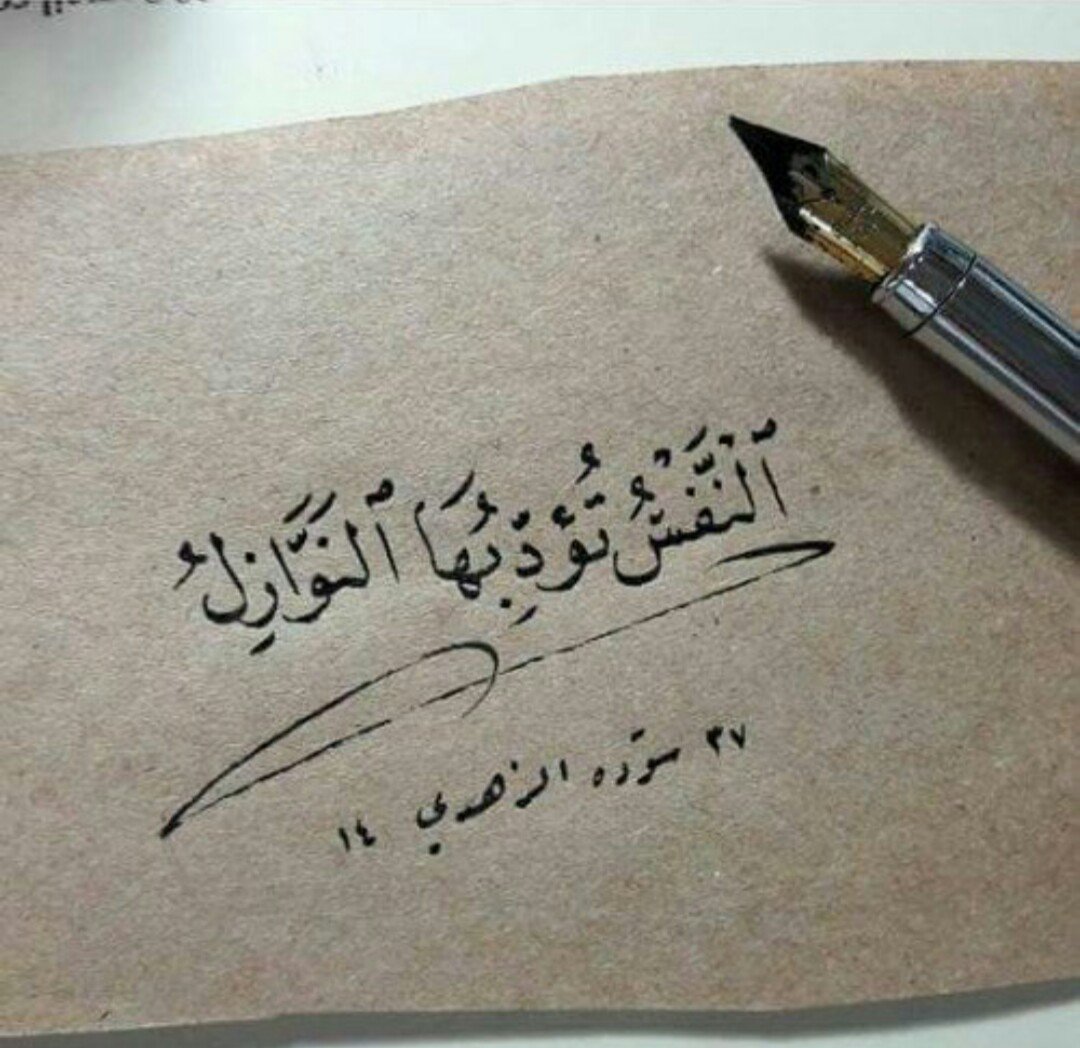 ٱلْنَّفْسُ تُؤَدِّبُهَا ٱلنَّوَازِلُ
٣٧ سَوّده الزهدي ١٤